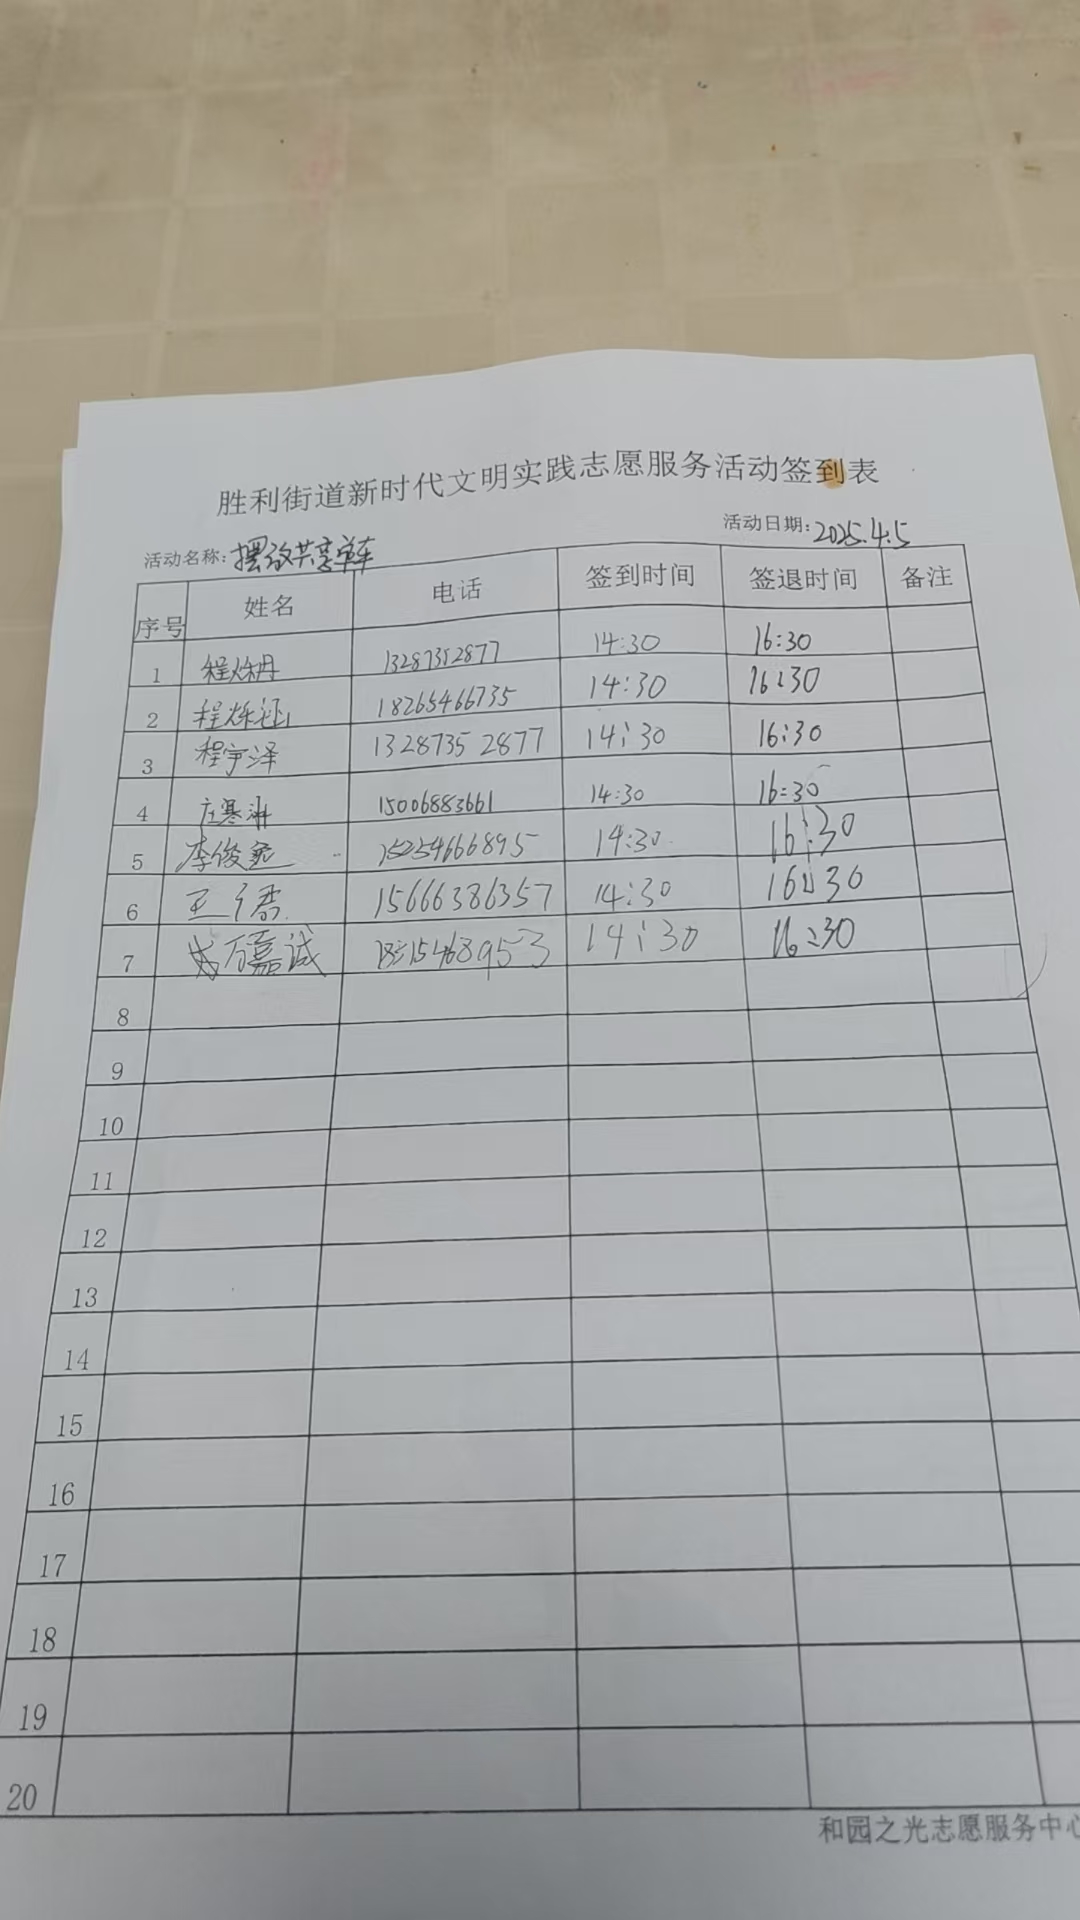 胜利街道新时代文明实践志愿服务活动签到表
活动名称: 摆放共享单车 活动日期: 2025.4.5
序号 姓名 电话 签到时间 签退时间 备注
1 程烁冉 13287352877 14:30 16:30
2 程烁 18265466735 14:30 16:30
3 程宇泽 13287352877 14:30 16:30
4 庄寒 15006883661 14:30 16:30
5 李俊 15254666895 14:30 16:30
6 王 15666386357 14:30 16:30
7 万嘉诚 14:30 16:30
8
9
10
11
12
13
14
15
16
17
18
19
20
和园之光志愿服务中心